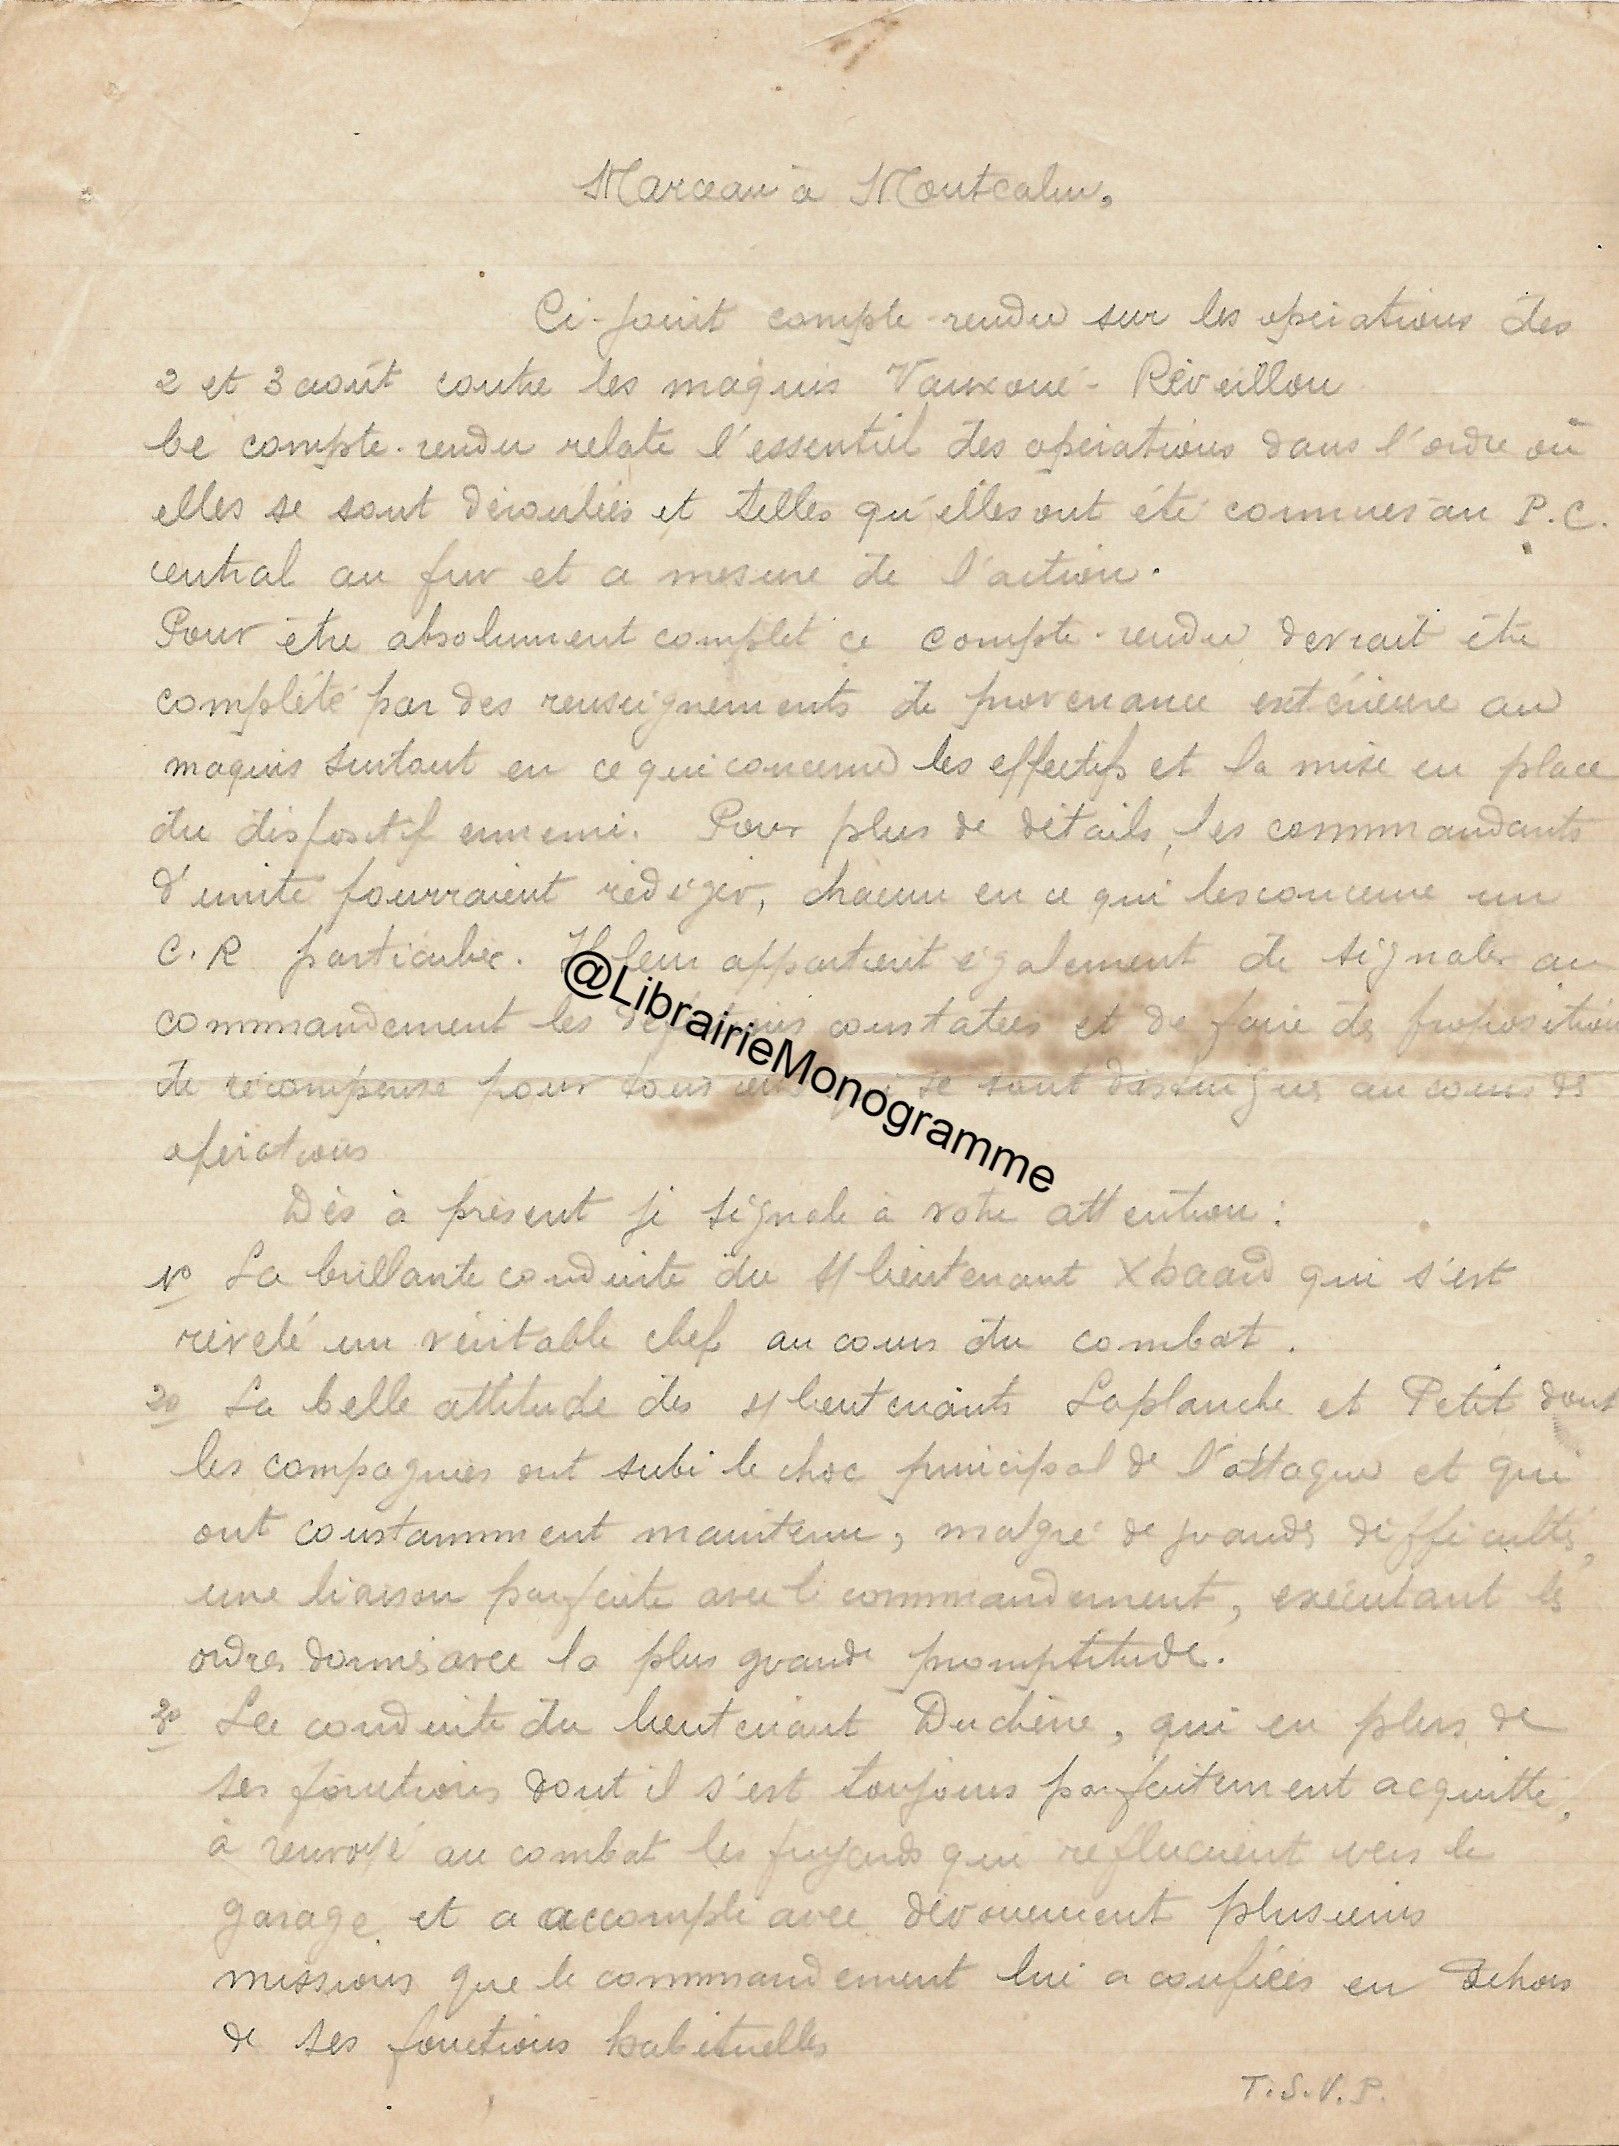 Marceau à Montcalm,
Ci-joint compte-rendu sur les opérations des
2 et 3 août contre les maquis Vauxoué - Réveillon
Ce compte-rendu relate l'essentiel des opérations dans l'ordre où
elles se sont déroulées et telles qu'elles ont été connues au P.C.
central au fur et a mesure de l'action.
Pour être absolument complet ce compte-rendu devrait être
complété par des renseignements de provenance extérieure au
maquis surtout en ce qui concerne les effectifs et la mise en place
du dispositif ennemi. Pour plus de détails, les commandants
d'unité pourraient rédiger, chacun en ce qui les concerne un
C.R particulier. Il leur appartient également de signaler au
commandement les constatées et de faire des proposition
de récompense pour tous ceux qui se sont distingués au cours des
opérations
Dès à présent je signale à votre attention :
1º La brillante conduite du s/lieutenant qui s'est
révélé un véritable chef au cours du combat.
2º La belle attitude des s/lieutenants Laplanche et Petit dont
les compagnies ont subi le choc principal de l'attaque et qui
ont constamment maintenu, malgré de grandes difficultés,
une liaison parfaite avec le commandement, exécutant les
ordres donnés avec la plus grande promptitude.
3º La conduite du lieutenant Duchêne, qui en plus de
ses fonctions dont il s'est toujours parfaitement acquitté,
à renvoyé au combat les fuyards qui refluaient vers le
garage et a accompli avec dévouement plusieurs
missions que le commandement lui a confiées en dehors
de ses fonctions habituelles
T.S.V.P.
@LibrairieMonogramme